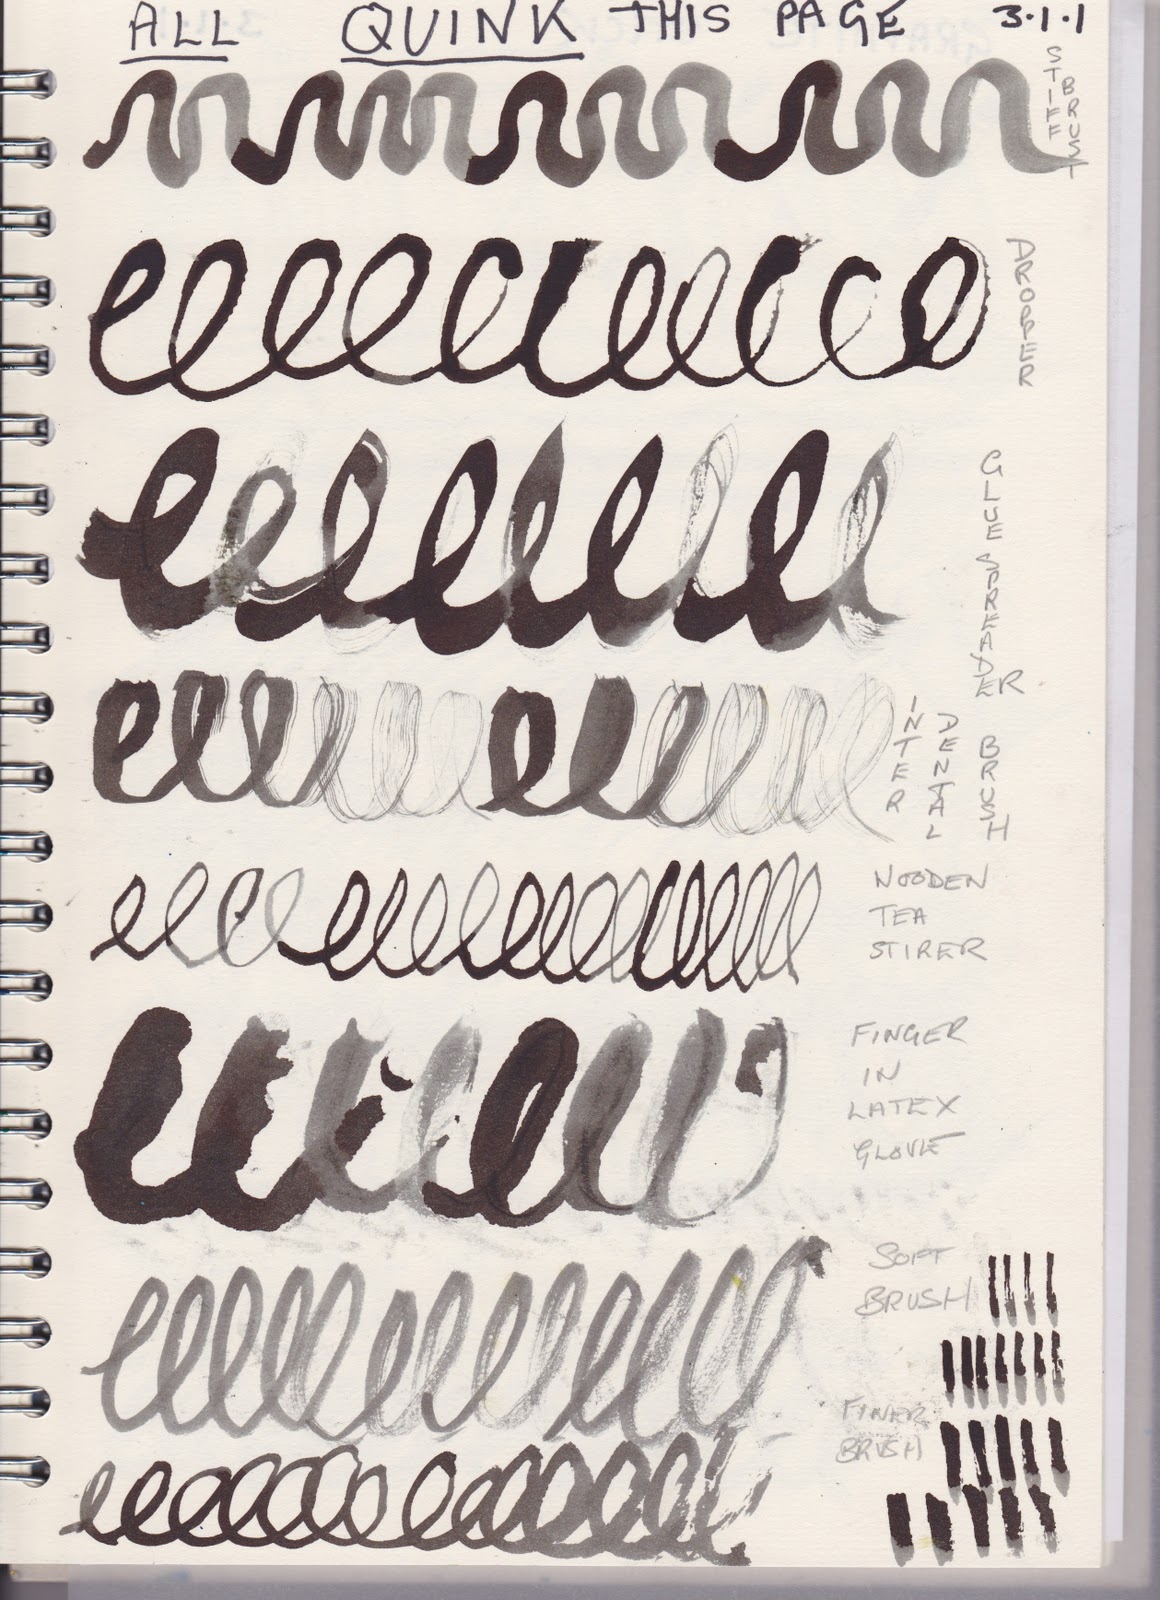 ALL QUINK THIS PAGE 3.1.1
STIFF
BRUST
DROPPER
GLUE SPREADER
INTER
DENTAL
BRUSH
WOODEN
TEA
STIRER
FINGER
IN
LATEX
GLOVE
SOFT
BRUSH
FINER
BRUSH